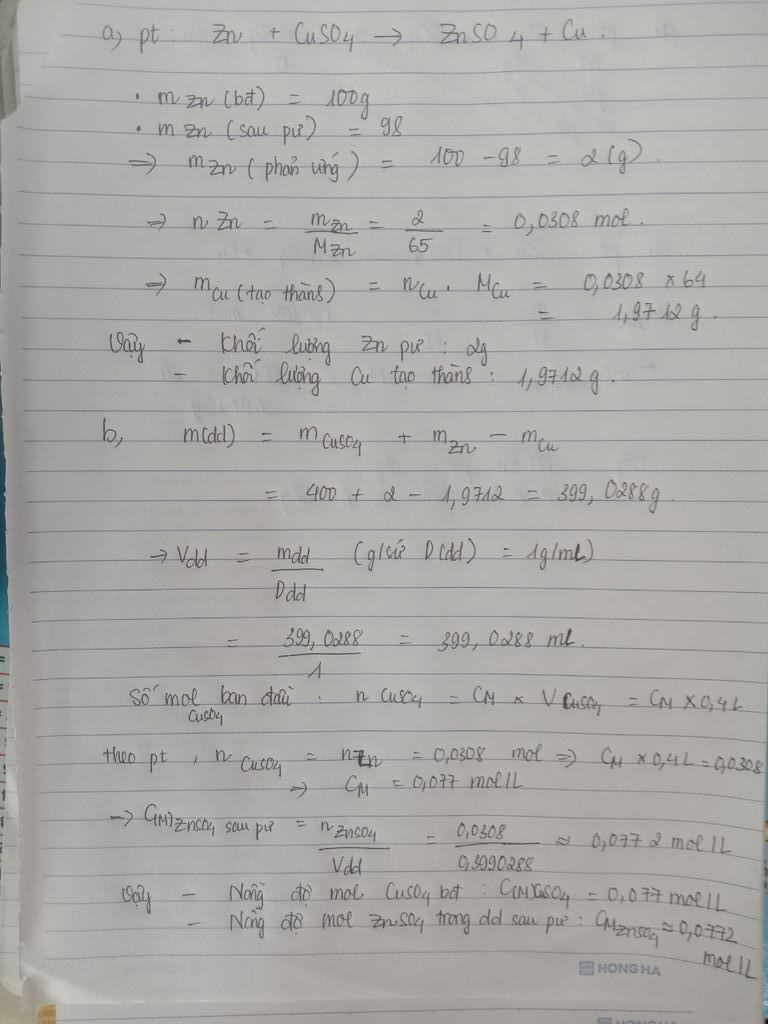 a, pt: Zn + CuSO4 → ZnSO4 + Cu.
• m Zn (bđ) = 100g
• m Zn (sau pư) = 98
⇒ m Zn (phản ứng) = 100 - 98 = 2 (g).
⇒ n Zn = mZn/MZn = 2/65 = 0,0308 mol.
⇒ mCu (tạo thành) = nCu. MCu = 0,0308 x 64
= 1,9712 g.
Vậy - Khối lượng Zn pư: 2g
- Khối lượng Cu tạo thành: 1,9712 g.
b, m(dd) = mCuSO4 + mZn - mCu
= 400 + 2 - 1,9712 = 399,0288g.
→ Vdd = mdd/Ddd (g/sử D(dd) = 1g/mL)
= 399,0288/1 = 399,0288 ml.
Số mol ban đầu: n CuSO4 = CM x VCuSO4 = CM x 0,4L
CuSO4
theo pt, n CuSO4 = nZn = 0,0308 mol ⇒ CM x 0,4L = 0,0308
→ CM = 0,077 mol/L
→ C(M) ZnSO4 sau pư = nZnSO4/Vdd = 0,0308/0,3990288 ≈ 0,0772 mol/L
Vậy - Nồng độ mol CuSO4 bđ: C(M)CuSO4 = 0,077 mol/L
- Nồng độ mol ZnSO4 trong dd sau pư: CMZnSO4 ≈ 0,0772
mol/L
HONG HA